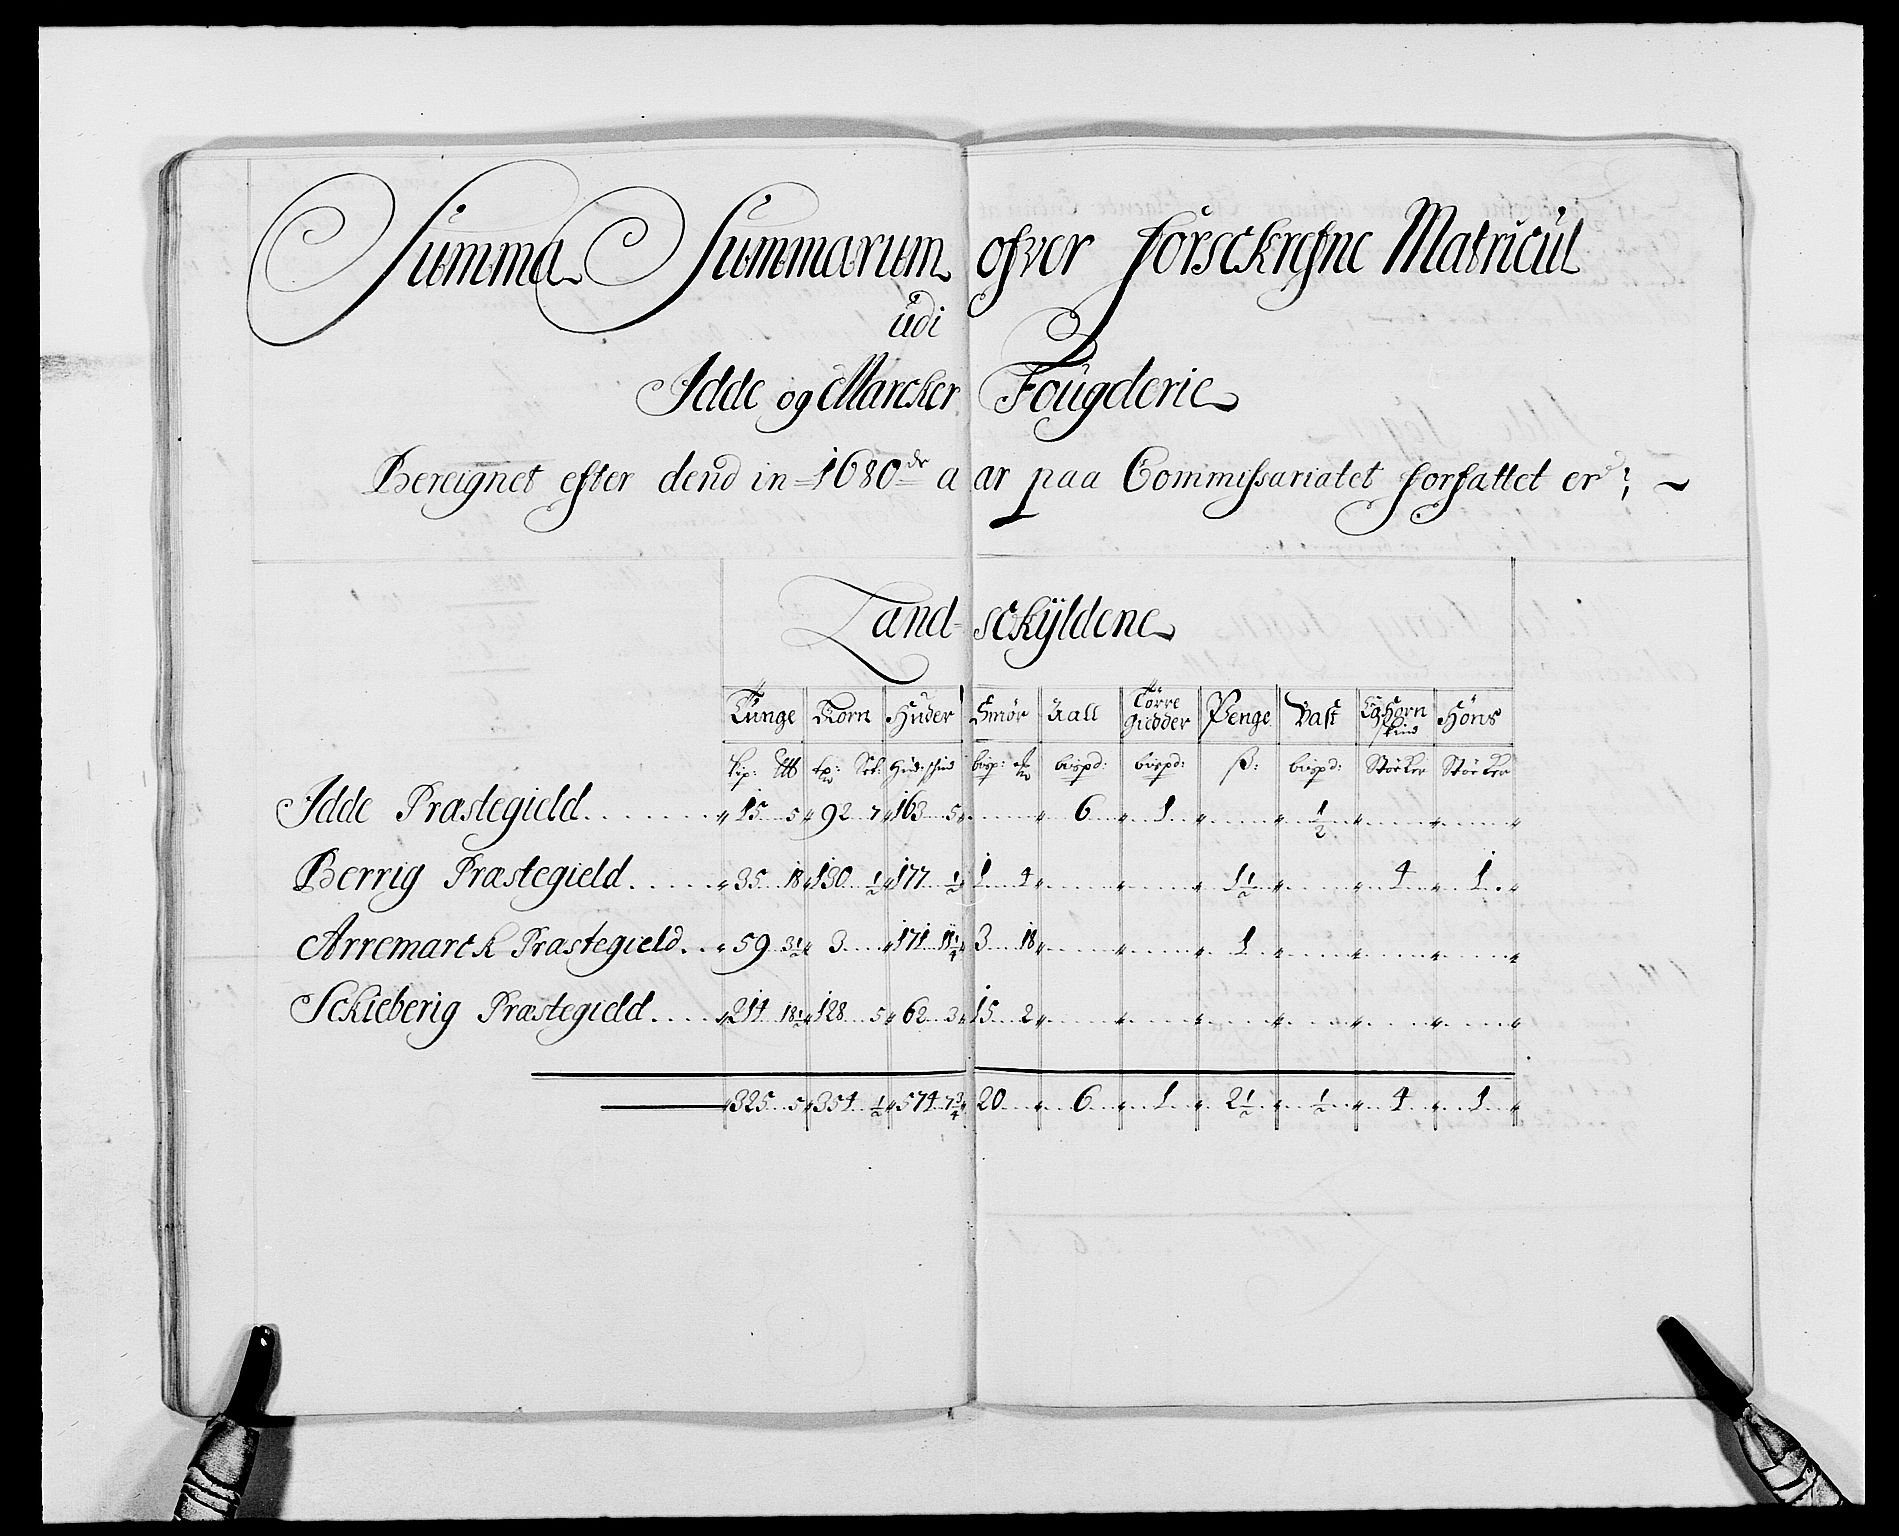 Summa Summarum ofver forsckrefne Matricül
üdi
Idde og Marcker Fougderie
Bereignet efter dend in 1680de aar paa Commissariatet forfattet er;
Land-sckÿldene
Tunge Korn Huder Smör Aall Törre Giedder Penge Vast Eghorn skind Höns
bispd: bispd: ß: bispd: Stöcker Stöcker
Idde Præstegield 15 5 92 7 163 5 6 1 ½
Berrig Præstegield 35 18 130 ½ 177 ½ 1 4 1½ 4 1
Arremarck Præstegield 59 3½ 3 171 11¼ 3 18 1
Sckieberig Præstegield 214 18½ 128 5 62 3 15 2
325 5 354 ½ 574 7¾ 20 6 1 2½ ½ 4 1